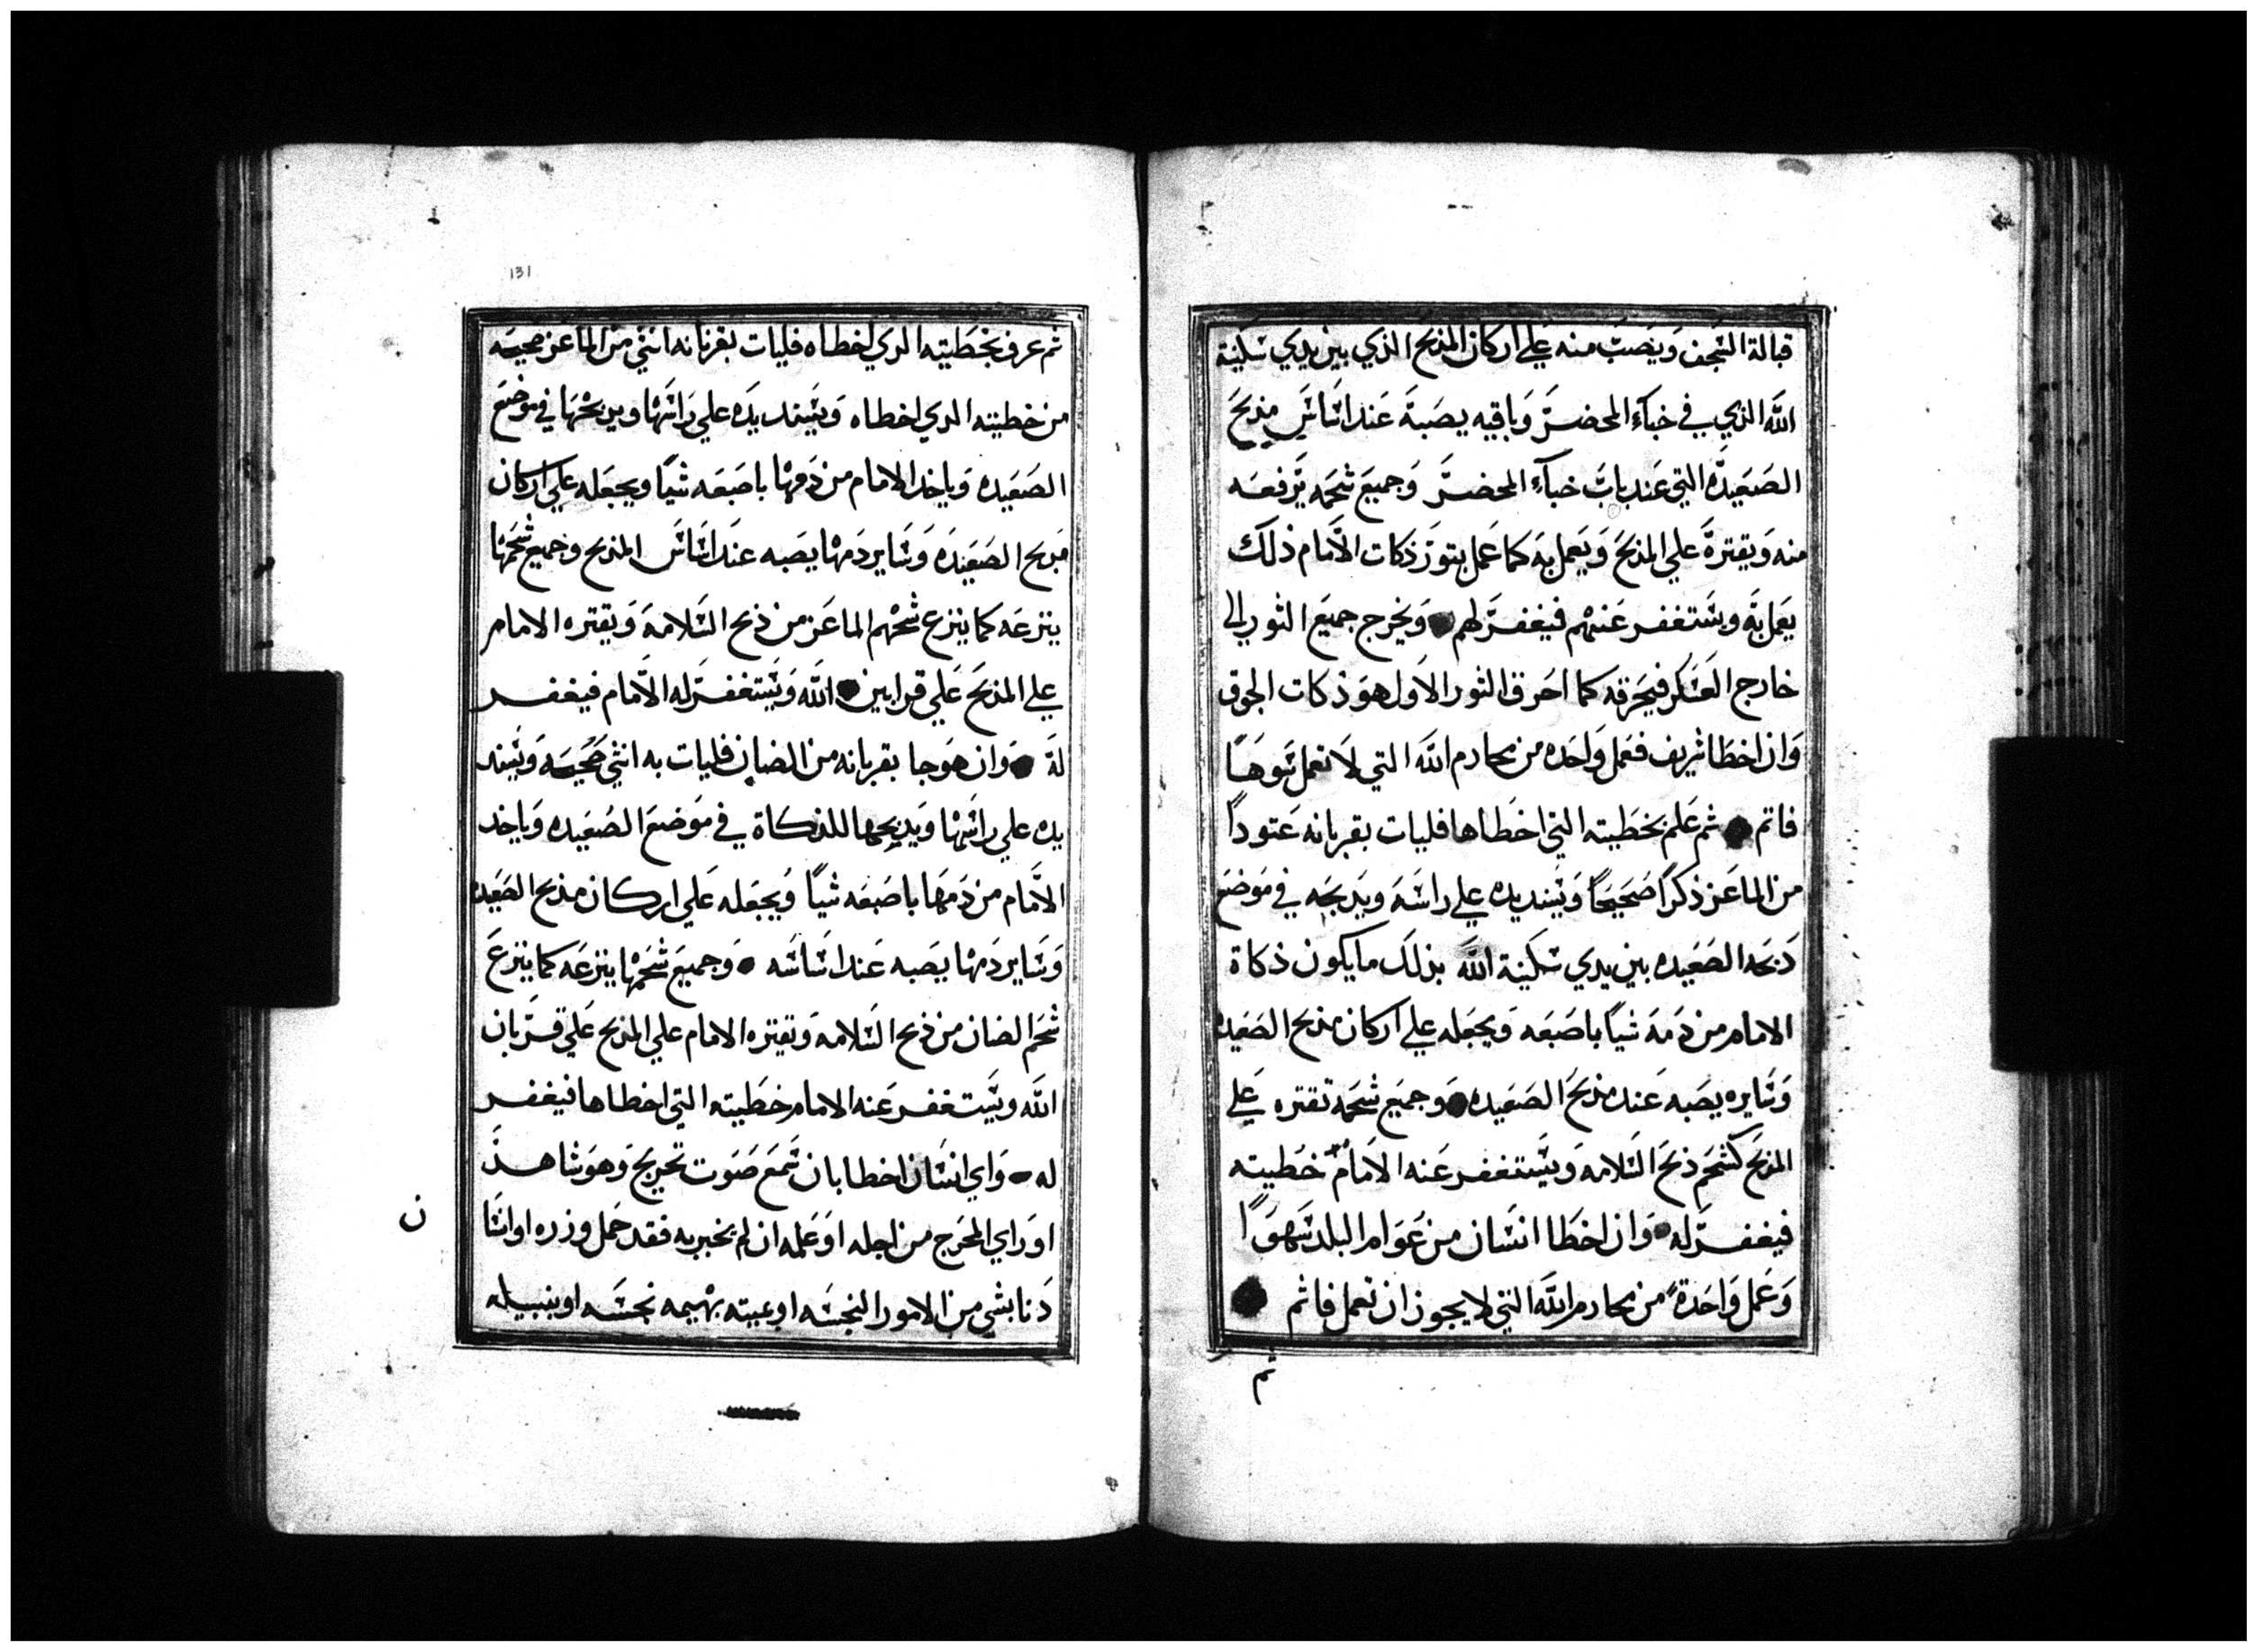 قبالة السجف ويصب منه علي اركان المذبح الذي بين يدي سكينة
الله الذي في خبآء المحضر وباقيه يصبة عند اساس مذبح
الصعيده التي عند باب خبآء المحضر وجميع شحمه يرفعه
منه ويقترة علي المذبح ويعمل به كما عمل بتور ذكات الامام ذلك
يعمل به ويستغفر عنهم فيغفر لهم ويخرج جميع الثور الى
خارج العسكر فيحرقه كما احرق الثور الاول هو ذكات الجوق
وان اخطا شريف ففعل واحده من محارم الله التي لا تعمل سوها
فاثم ثم علم بخطيته التي اخطاها فليات بقربانه عتوداً
من الماعز ذكراً صحيحاً ويسند يده علي راسه ويدبحه في موضع
دبحه الصعيده بين يدي سكينة الله بذلك ما يكون ذكاة
الامام من دمه شياً باصبعه ويجعله علي اركان مذبح الصعيده
وسايره يصبه عند مذبح الصعيده وجميع شحمه تقتره علي
المذبح كشحم ذبح السلامه ويستغفر عنه الامام خطيته
فيغفر له وان اخطا انسان من عوام البلد سهواً
وعمل واحدة من محارم الله التي لا يجوز ان تعمل فاثم
ثم
131
ثم عرف بخطيته الدي اخطاه فليات بقربانه انثي من الماعز صحيحه
من خطيته الدي اخطاه ويسند يده علي راسها ويدبحها في موضع
الصعيده وياخد الامام من دمها باصبعه شياً ويجعله علي اركان
مدبح الصعيده وساير دمها يصبه عند اساس المذبح وجميع شحمها
ينزعه كما ينزع شحم الماعز من ذبح السلامه ويقتره الامام
علي المذبح علي قرابين الله ويستغفر له الامام فيغفر
له وان هو جا بقربانه من الضان فليات به انثي صحيحه ويسند
يده علي راسها ويدبحها للذكاة في موضع الصعيده وياخد
الامام من دمها باصبعه شياً ويجعله علي اركان مذبح الصعيده
وساير دمها يصبه عند اساسه وجميع شحمها ينزعه كما ينزع
شحم الضان من ذبح السلامه وتقتره الامام علي المذبح علي قربان
الله ويستغفر عنه الامام خطيته التي اخطاها فيغفر
له واي انسان اخطا بان سمع صوت تحريج وهو شاهد
او راي المحرج من اجله او علمه ان لم يخبر به فقد حمل وزره او انسا
ن
دنا بشي من الامور النجسه او عيبته بهيمه نجسه او بنبيله